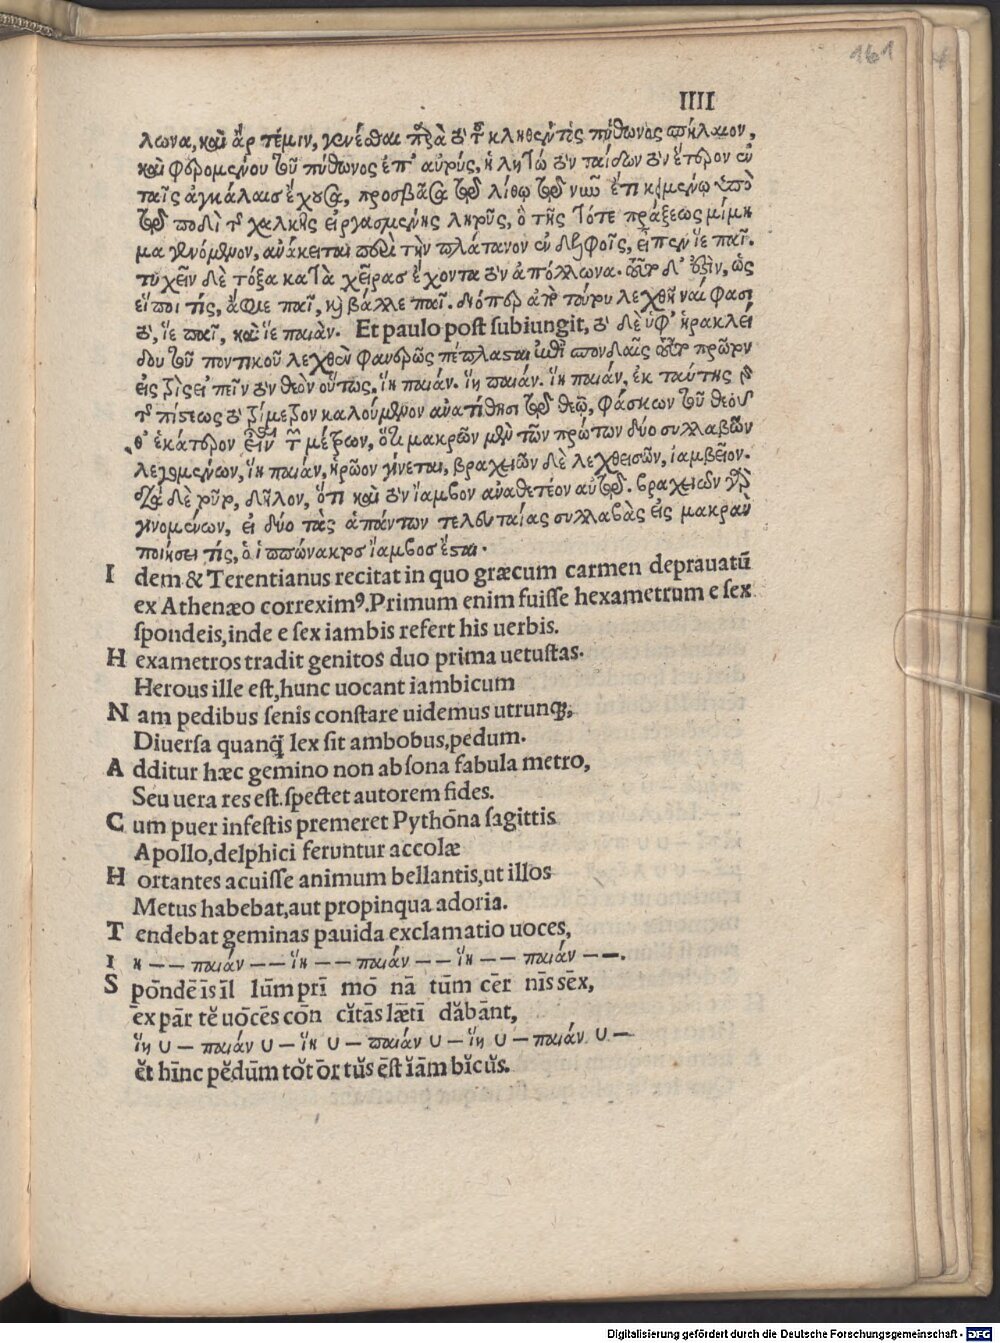 161
IIII
λωνα, καὶ ἄρτεμιν, γενέσθαι παρὰ τὸ τοῦ κληθέντος πύθωνος σπήλαιον,
καὶ φερομένου τοῦ πύθωνος ἐπ' αὐτούς, ἡ λητὼ τὸν παίδων τὸν ἕτερον ἐν
ταῖς ἀγκάλαισ ἔχουσα, προσβᾶσα τῷ λίθῳ τῷ νῦν ἔτι κειμένῳ ὑπὸ
τῷ ποδὶ τῆς χαλκῆς εἰργασμένης λητοῦς, ὃ τῆς τότε πράξεως μίμη
μα γενόμενον, ἀνάκειται περὶ τὴν πλάτανον ἐν δελφοῖς, εἶπεν ἵε παῖ.
τυχεῖν δὲ τόξα κατὰ χεῖρασ ἔχοντα τὸν ἀπόλλωνα. τοῦτο δ' ἐστὶν, ὡς
εἴποι τίς, ἄφιε παῖ, καὶ βάλλε παῖ. διόπερ ἀπὸ τούτου λεχθῆναί φασι
τὸ, ἵε παῖ, καὶ ἵε παιὰν. Et paulo post subiungit, τὸ δὲ ὑφ' ἡρακλεί
δου τοῦ ποντικοῦ λεχθὲν φανερῶς πέπλασται ἐπὶ σπονδαῖς τοῦτο πρῶτον
εἰς τρὶς εἰπεῖν τὸν θεὸν οὕτως, ἵη παιάν. ἵη παιάν. ἵη παιάν, ἐκ ταύτης
τῆς πίστεως τὸ τρίμετρον καλούμενον ἀνατίθησι τῷ θεῷ, φάσκων τοῦ θεοῦ
θ' ἑκάτερον εἶναι τῶν μέτρων, ὅτι μακρῶν μὲν τῶν πρώτων δύο συλλαβῶν
λεγομένων, ἵη παιάν, ἡρῶον γίνεται, βραχειῶν δὲ λεχθεισῶν, ἰαμβεῖον.
διὰ δὲ τοῦτο, δῆλον, ὅτι καὶ τὸν ἴαμβον ἀναθετέον αὐτῷ. βραχειῶν γὰρ
γινομένων, εἰ δύο τὰς ἁπάντων τελευταίας συλλαβὰς εἰς μακρὰν
ποιήσει τίς, ὁ ἱππώνακτος ἴαμβοσ ἔσται.
I dem & Terentianus recitat in quo græcum carmen deprauatū
ex Athenæo correximꝰ. Primum enim fuisse hexametrum e sex
spondeis, inde e sex iambis refert his uerbis.
H exametros tradit genitos duo prima uetustas.
Herous ille est, hunc uocant iambicum
N am pedibus senis constare uidemus utrunq;,
Diuersa quanq̃ lex sit ambobus, pedum.
A dditur hæc gemino non absona fabula metro,
Seu uera res est. spectet autorem fides.
C um puer infestis premeret Pythōna sagittis
Apollo, delphici feruntur accolæ
H ortantes acuisse animum bellantis, ut illos
Metus habebat, aut propinqua adoria.
T endebat geminas pauida exclamatio uoces,
I η — — παιάν — — ἵη — — παιάν — — ἵη — — παιάν — —.
S pōndēīs īl lūm prī mō nā tūm cēr nīs sēx,
ēx pār tĕ uōcēs cōn cĭtās lǣtī dăbānt,
ἵη ∪ — παιάν ∪ — ἵη ∪ — παιάν ∪ — ἵη ∪ — παιάν ∪ —
ĕt hīnc pĕdūm tŏt ōr tŭs ēst ĭām bĭcŭs.
Digitalisierung gefördert durch die Deutsche Forschungsgemeinschaft - DFG